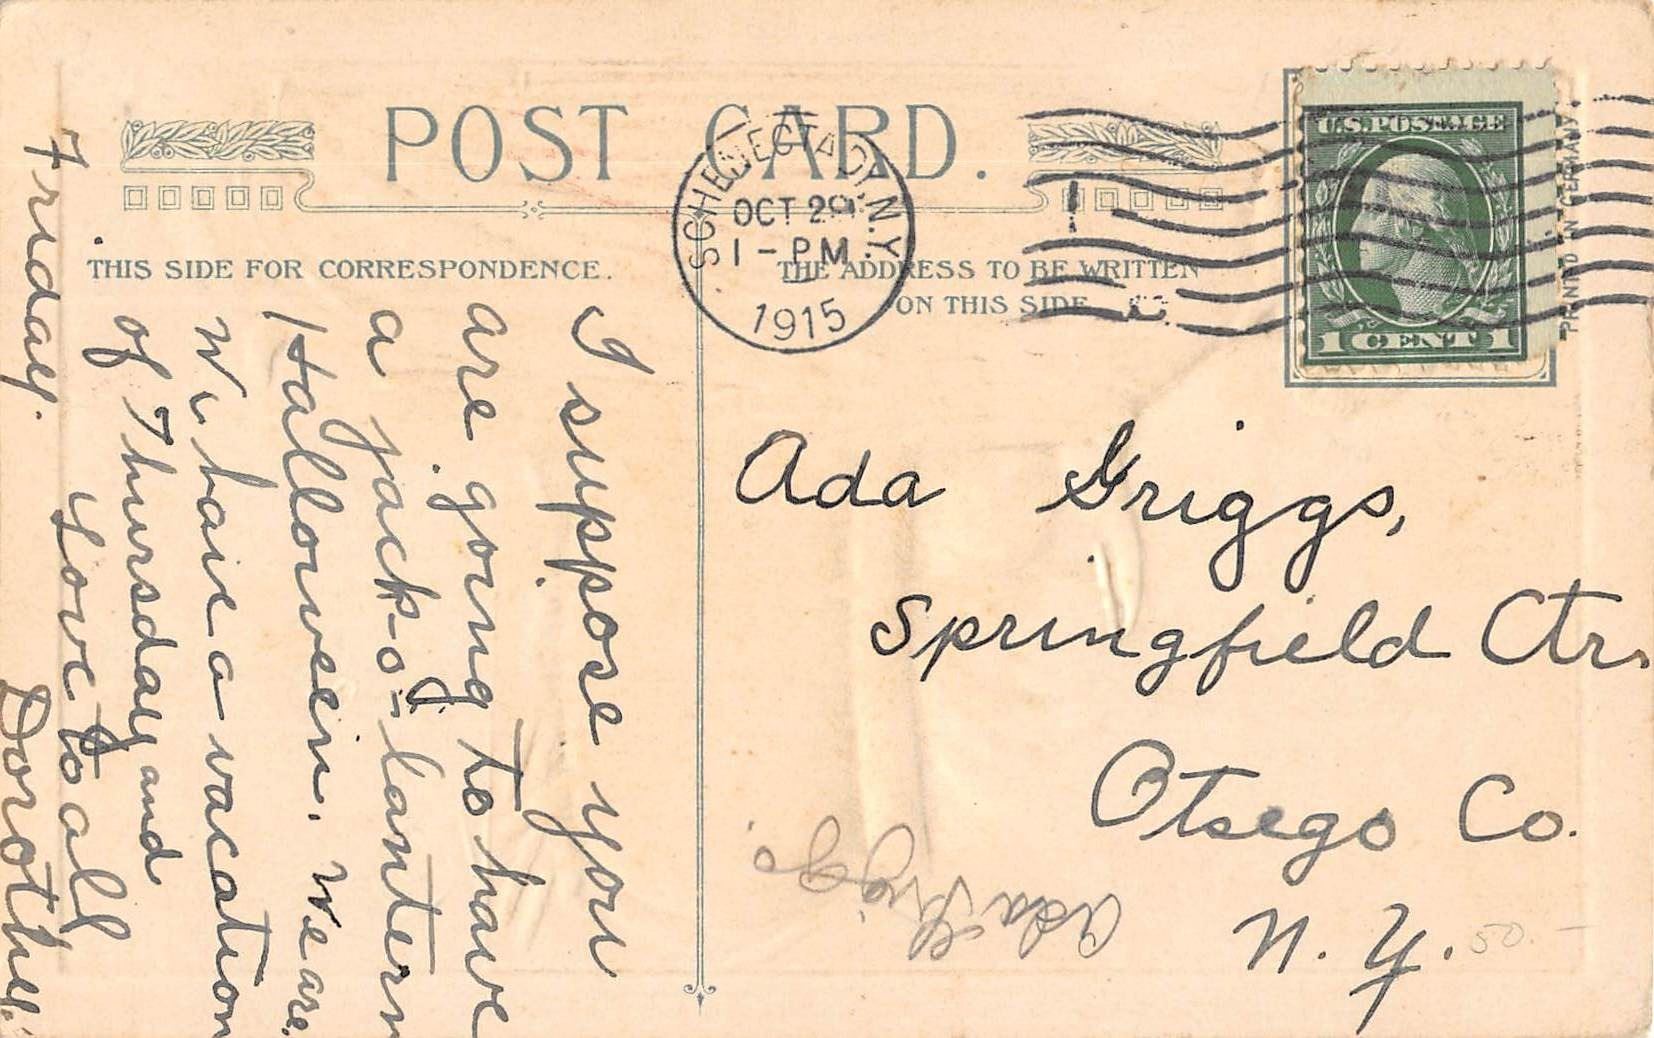 POST CARD.
THIS SIDE FOR CORRESPONDENCE.
THE ADDRESS TO BE WRITTEN
ON THIS SIDE
SCHENECTADY, N.Y.
OCT 29
1 - PM
1915
U.S. POSTAGE
1 CENT 1
PRINTED IN GERMANY.
I suppose you
are going to have
a jack-o-lantern
Hallowe'en. We are.
We have a vacation
of Thursday and
Friday.
Love to all
Dorothy.
Ada Griggs,
Springfield Ctr.
Otsego Co.
N. Y.
Ada Griggs.
50.-